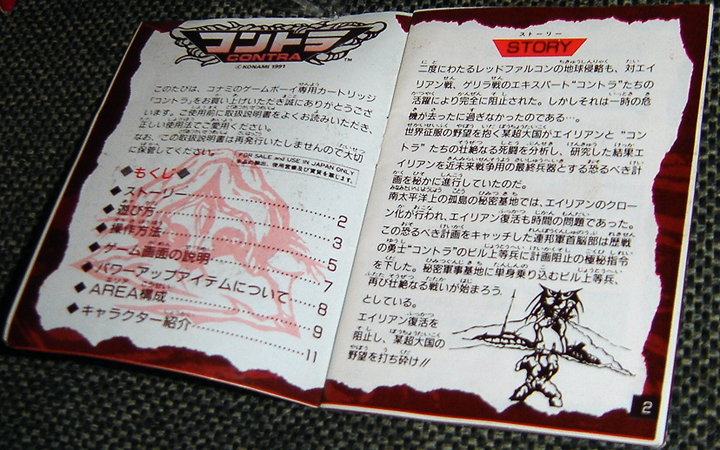 コントラ
CONTRA
©KONAMI 1991
TM
このたびは、コナミのゲームボーイ専用カートリッジ
「コントラ」をお買い上げいただき誠にありがとうござ
います。ご使用前に取扱説明書をよくお読みいただき、
正しい使用法でご愛用ください。
なお、この取扱説明書は再発行いたしませんので大切
に保管してください。
FOR SALE and USE IN JAPAN ONLY
◆もくじ◆
◆ストーリー 2
◆遊び方 3
◆操作方法 5
◆ゲーム画面の説明 7
◆パワーアップアイテムについて 8
◆AREA構成 9
◆キャラクター紹介 11
ストーリー
STORY
二度にわたるレッドファルコンの地球侵略も、対エイ
リアン戦、ゲリラ戦のエキスパート“コントラ”たちの
活躍により完全に阻止された。しかしそれは一時の危
機が去ったに過ぎなかったのであ…。
世界征服の野望を抱く某超大国がエイリアンと“コン
トラ”たちの壮絶なる死闘を分析し、研究した結果エ
イリアンを近未来戦争用の最終兵器とする恐るべき計
画を秘かに進行していたのだ。
南太平洋上の孤島の秘密基地では、エイリアンのクロー
ン化が行われ、エイリアン復活も時間の問題であった。
この恐るべき計画をキャッチした連邦軍首脳部は歴戦
の勇士“コントラ”のビル上等兵に計画阻止の極秘指令
を下した。秘密軍事基地に単身乗り込むビル上等兵、
再び壮絶なる戦いが始まろう
としている。
エイリアン復活を
阻止し、某超大国の
野望を打ち砕け!!
2